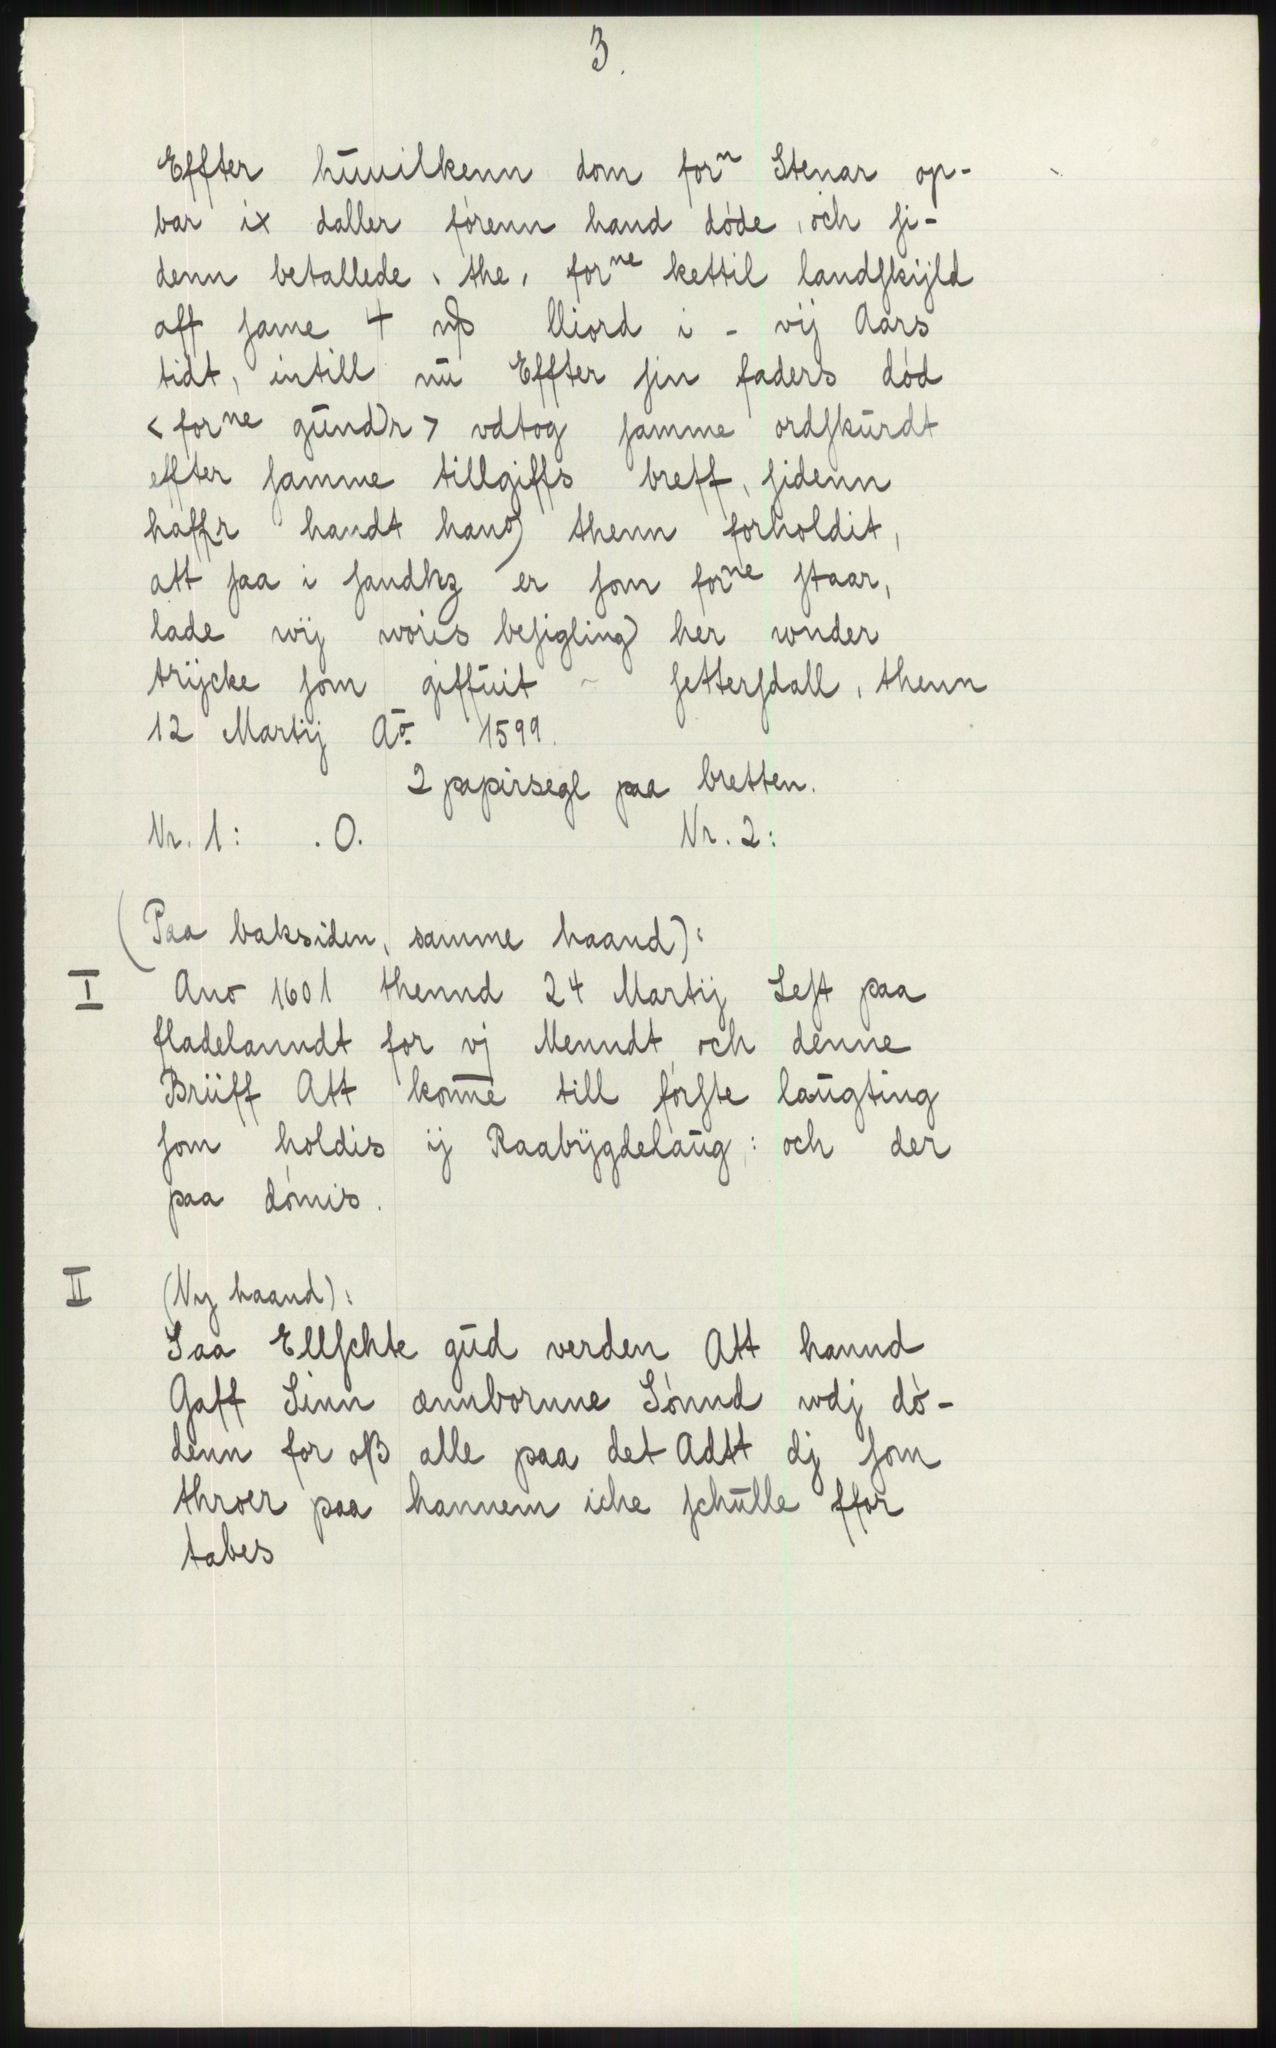 3.
Effter huuilkenn dom forⁿ Stenar op-
bar ix daller förenn hand döde, och si-
denn betallede, the, forⁿᵉ kettil landskÿld
aff same 4 Uiord i - vij Aars
tidt, intill nu Effter sin faders död
< forⁿᵉ gundr > vdtog samme ordskurdt
effter samme tillgiffs breff, sidenn
haffr handt hanō thenn forholdit,
att saa i sandhz er som forⁿᵉ staar,
lade wij woris besigling her wnder
trÿcke som giffuit ~ settersdall, thenn
12 Martij Aō. 1599.
2 papirsegl paa bretten.
Nr. 1: . O. Nr. 2:
(Paa baksiden, samme haand):
I Ano 1601 thennd 24 Martij Sest paa
fladelanndt for vj Menndt och denne
Briiff Att kom̄e till förste laugting
som holdis ij Raabÿgdelaug: och der
paa dömis.
II (Ny haand):
Saa Ellschte gud verden Att hannd
Gaff Sinn ænnbornne Sönnd wdj dö-
denn for oß alle paa det Adtt dj som
throer paa hannem iche schulle ffor
tabes